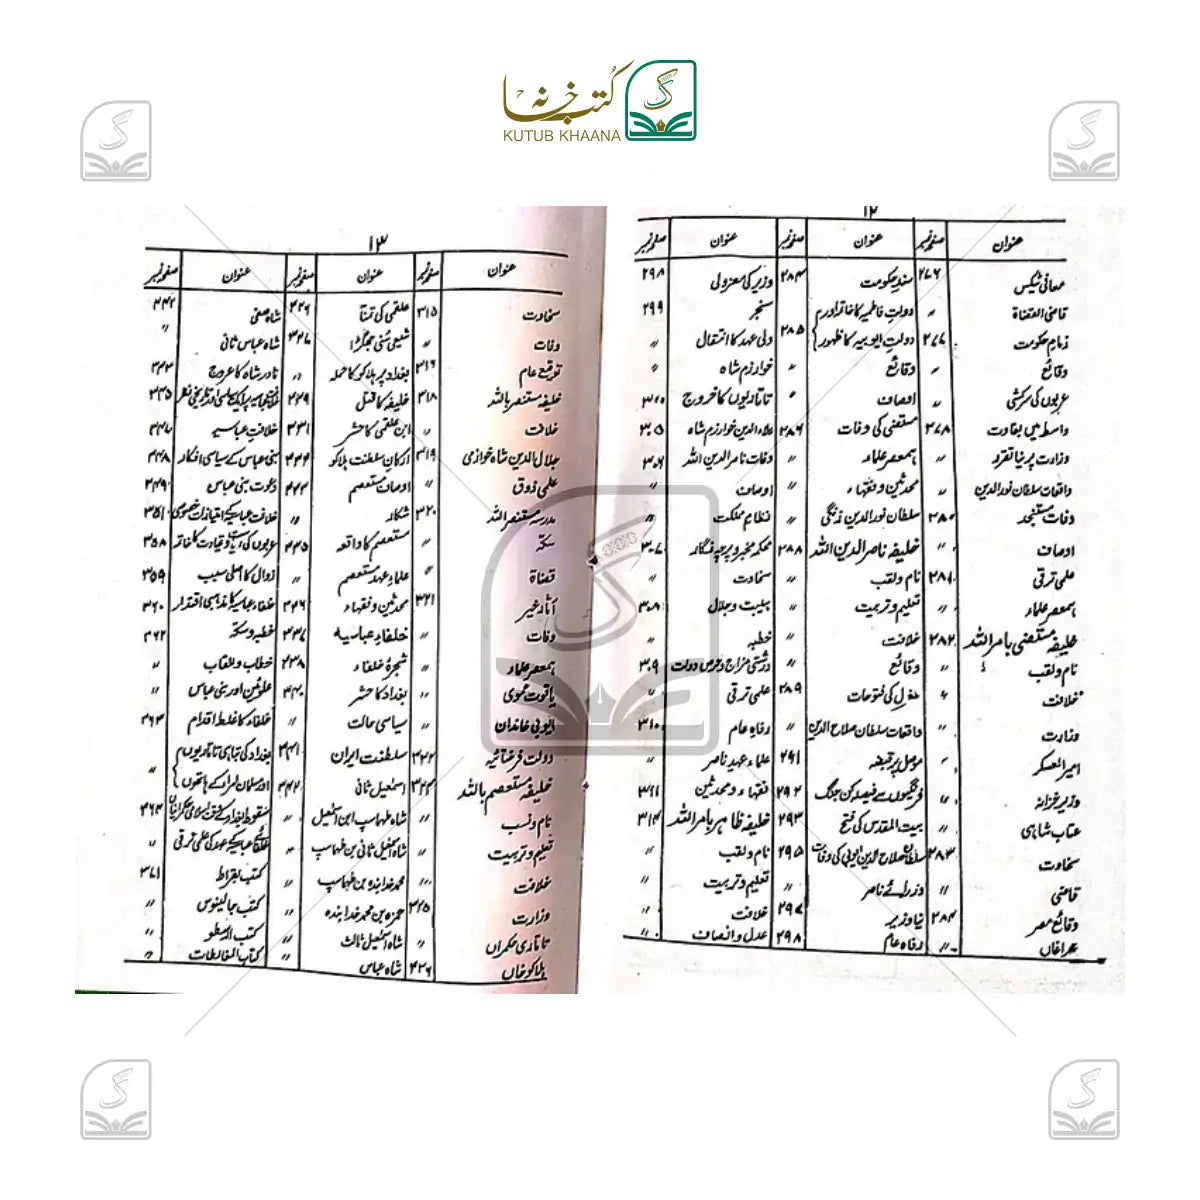 کتب خانہ
KUTUB KHAANA
۱۲
عنوان صفحہ نمبر عنوان صفحہ نمبر عنوان صفحہ نمبر
معافی ٹیکس ۲۷۶ سند حکومت ۲۸۴ وزیر کی معزولی ۲۹۸
قاضی القضاۃ " دولت فاطمیہ کا خاتمہ اور سنجر ۲۹۹
زمام حکومت ۲۷۷ دولت ایوبیہ کا ظہور ۲۸۵ ولی عہد کا انتقال "
وقائع " وقائع " خوارزم شاہ "
عربوں کی سرکشی " اوصاف " تاتاریوں کا خروج ۳۰۰
واسط میں بغاوت ۲۷۸ مستضی کی وفات ۲۸۶ علاء الدین خوارزم شاہ ۳۰۵
وزارت پر نیا تقرر " ہمعصر علماء " وفات ناصر الدین اللہ ۳۰۶
واقعات سلطان نور الدین " محدثین و فقہاء " اوصاف "
وفات مستنجد ۲۸۰ سلطان نور الدین زنگی " نظام مملکت "
اوصاف " خلیفہ ناصر الدین اللہ ۲۸۸ محکمہ مخبر و پرچہ نگار ۳۰۷
علمی ترقی ۲۸۱ نام و لقب " سخاوت "
ہمعصر علماء " تعلیم و تربیت " ہیبت و جلال ۳۰۸
خلیفہ مستضی بامر اللہ ۲۸۲ خلافت " خطبہ "
نام و لقب " وقائع " درشتی مزاج و حرص دولت ۳۰۹
خلافت " مغل کی فتوحات ۲۸۹ علمی ترقی "
وزارت واقعات سلطان صلاح الدین " رفاہ عام ۳۱۰
امیر العسکر " موصل پر قبضہ ۲۹۱ علماء عہد ناصر "
وزیر خزانہ " فرنگیوں سے فیصلہ کن جنگ ۲۹۲ فقہاء و محدثین ۳۱۱
عتاب شاہی " بیت المقدس کی فتح ۲۹۳ خلیفہ ظاہر بامر اللہ ۳۱۴
سخاوت ۲۸۳ سلطان صلاح الدین ایوبی کی وفات ۲۹۵ نام و لقب "
قاضی " وزرائے ناصر " تعلیم و تربیت "
وقائع مصر ۲۸۴ نیا وزیر ۲۹۷ خلافت "
" رفاہ عام ۲۹۸ عدل و انصاف "
۱۳
عنوان صفحہ نمبر عنوان صفحہ نمبر عنوان صفحہ نمبر
سخاوت ۳۱۵ علقمی کی تمنا ۳۲۶ شاہ صفی ۳۴۲
وفات " شیعی سنی جھگڑا ۳۲۷ شاہ عباس ثانی "
توقیع عام ۳۱۶ بغداد پر ہلاکو کا حملہ " نادر شاہ کا عروج ۳۴۳
خلیفہ مستنصر باللہ ۳۱۸ خلیفہ کا قتل ۳۲۹ ۳۴۵
خلافت " ابن علقمی کا حشر ۳۳۱ خلافت عباسیہ ۳۴۷
جلال الدین شاہ خوارزمی ۳۱۹ ارکان سلطنت ہلاکو ۳۳۲ بنی عباس کے سیاسی افکار ۳۴۸
علمی ذوق " اوصاف مستعصم ۳۳۳ دعوت بنی عباس ۳۴۹
مدرسہ مستنصر اللہ ۳۲۰ شکار " خلافت عباسیہ کے امتیازات خصوصی ۳۵۱
سکہ " مستعصم کا واقعہ ۳۳۵ عربوں کی سیادت و قیادت کا خاتمہ ۳۵۸
قضاۃ " علماء عہد مستعصم " زوال کا اصلی سبب ۳۵۹
آثار خیر ۳۲۱ محدثین و فقہاء ۳۳۶ خلفاء عباسیہ کا مذہبی اقتدار ۳۶۰
وفات " خلفاء عباسیہ ۳۳۷ خطبہ و سکہ ۳۶۲
ہمعصر علماء " شجرۂ خلفاء ۳۳۸ خطاب و القاب "
یاقوت حموی " بغداد کا حشر ۳۴۰ علوئین اور بنی عباس "
ایوبی خاندان " سیاسی حالت " خلفاء کا غلط اقدام ۳۶۳
دولت فرغانیہ ۳۲۲ سلطنت ایران ۳۴۱ بغداد کی تباہی تاتاریوں
خلیفہ مستعصم باللہ ۳۲۴ اسمٰعیل ثانی ۳۴۲ اور مسلمان امراء کے ہاتھوں "
نام و نسب " شاہ طہماسپ ابن اسمٰعیل " ۳۶۴
تعلیم و تربیت " شاہ اسمٰعیل ثانی بن طہماسپ " خلفائے عباسیہ کے عہد کی علمی ترقی "
خلافت " محمد خدابندہ بن طہماسپ " کتب بقراط ۳۷۱
وزارت ۳۲۵ حمزہ بن محمد خدابندہ " کتب جالینوس "
تاتاری حکمراں " شاہ اسمٰعیل ثالث " کتب ارسطو "
ہلاکو خاں ۳۲۶ شاہ عباس " کتاب المغالطات "